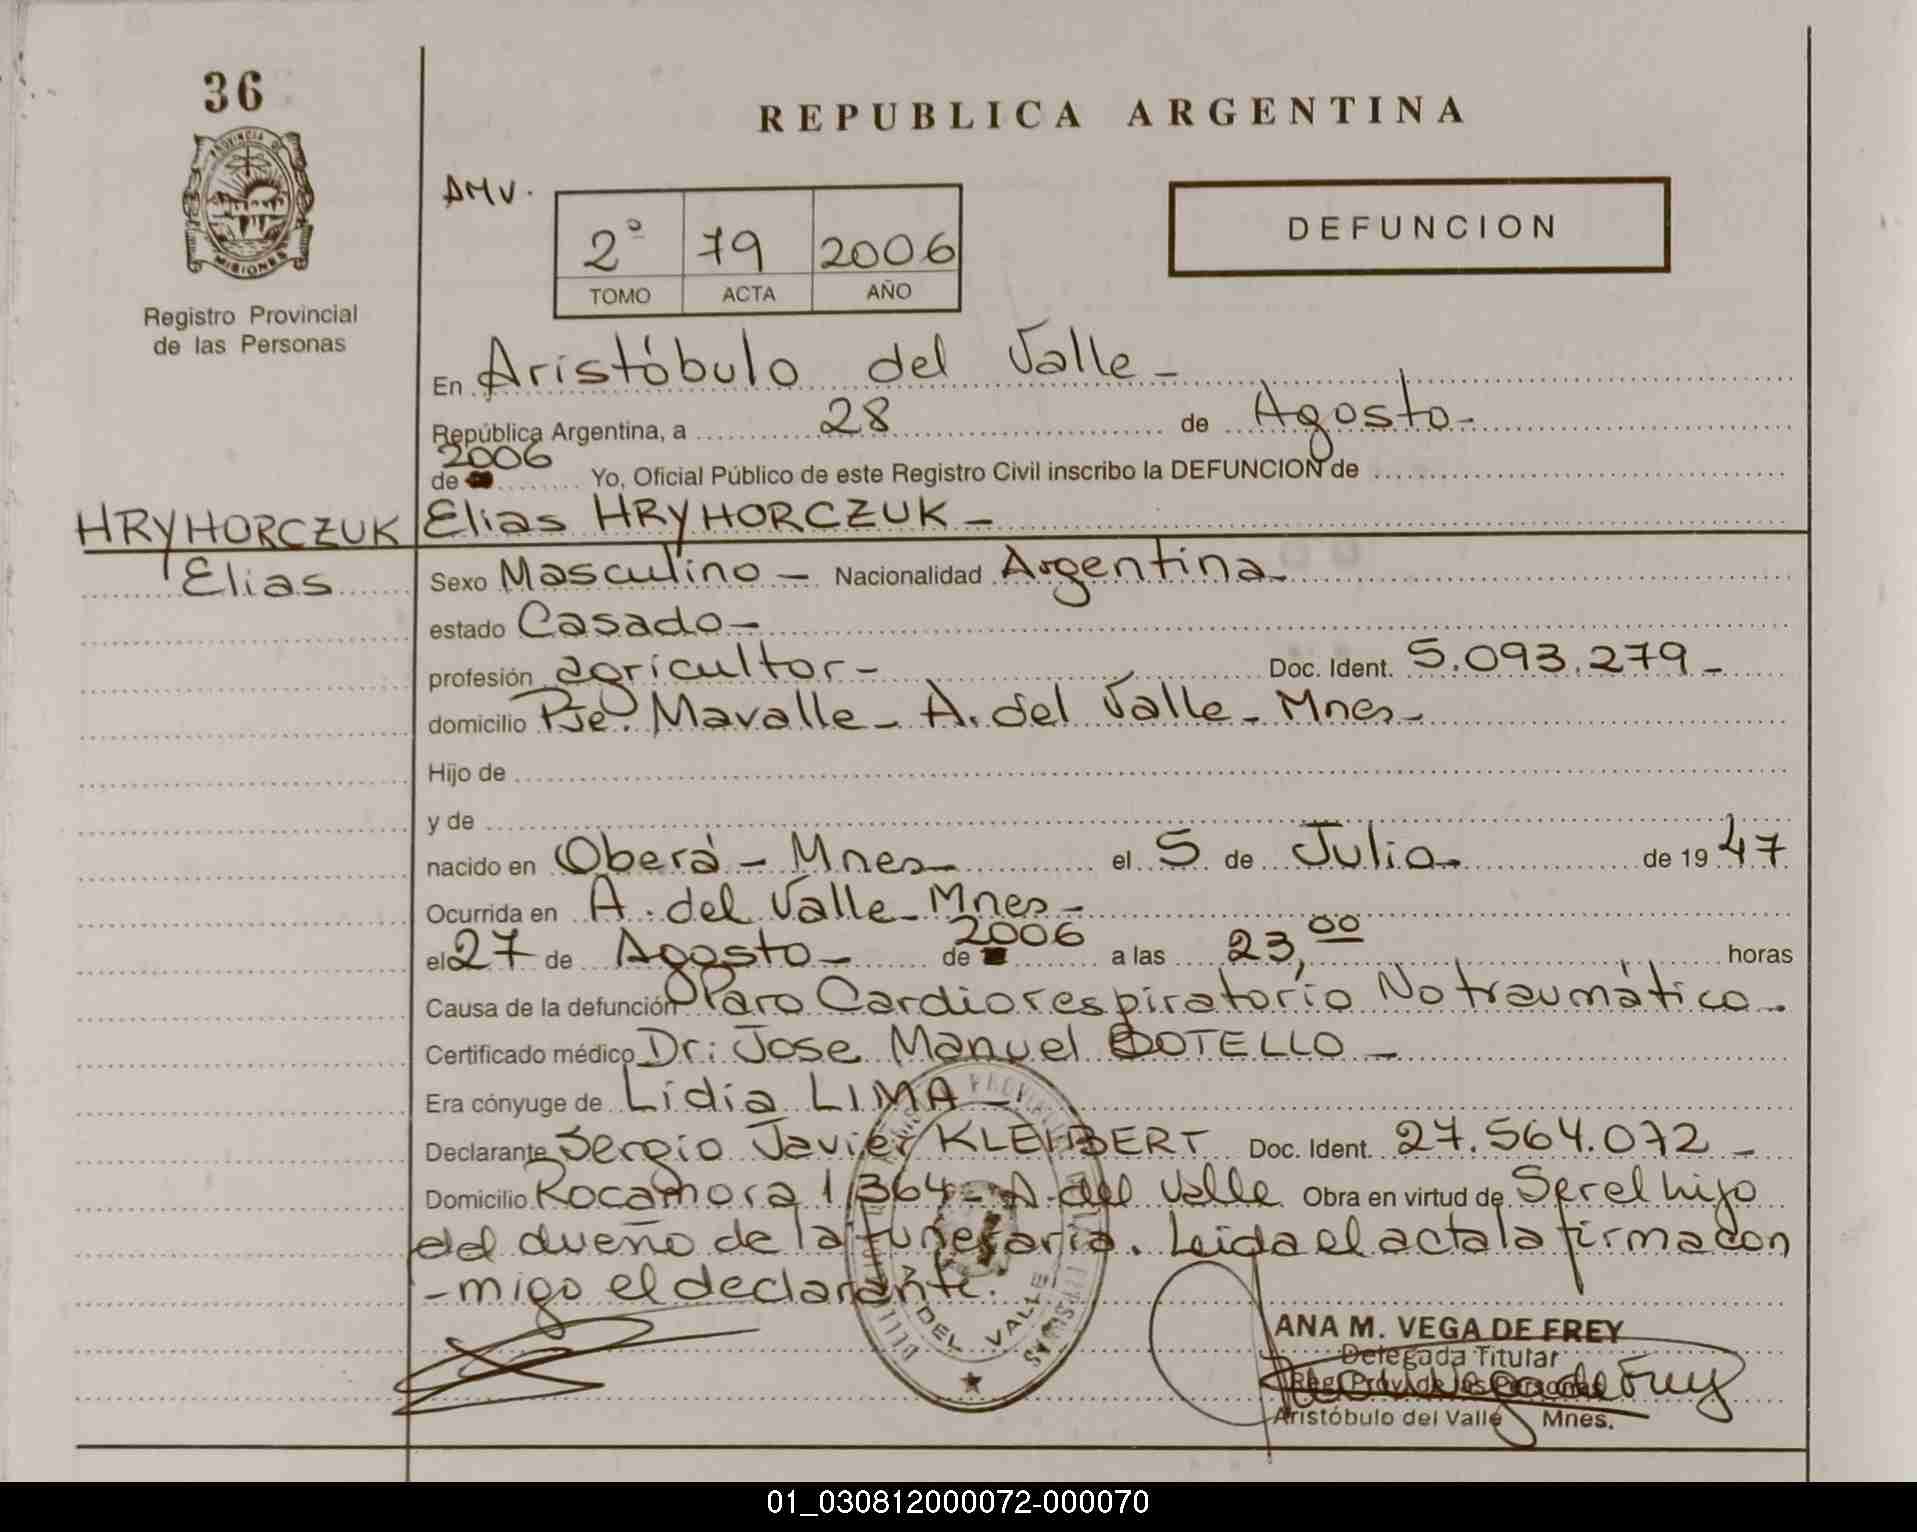 36
PROVINCIA DE
MISIONES
Registro Provincial
de las Personas
REPUBLICA ARGENTINA
AMV.
2º 79 2006
TOMO ACTA AÑO
DEFUNCION
En Aristóbulo del Valle -
República Argentina, a 28 de Agosto -
2006
de Yo, Oficial Público de este Registro Civil inscribo la DEFUNCION de
HRYHORCZUK
Elias
Elias HRYHORCZUK -
Sexo Masculino - Nacionalidad Argentina -
estado Casado -
profesión agricultor - Doc. Ident. 5.093.279 -
domicilio Pje. Mavalle - A. del Valle - Mnes -
Hijo de
y de
nacido en Oberá - Mnes - el 5 de Julio - de 19 47
Ocurrida en A. del Valle - Mnes -
el 27 de Agosto - de 2006 a las 23,00 horas
Causa de la defunción Paro Cardiorespiratorio No traumático -
Certificado médico Dr: Jose Manuel BOTELLO -
Era cónyuge de Lidia LIMA -
Declarante Sergio Javier KLEIBERT Doc. Ident. 27.564.072 -
Domicilio Rocamora 1364 - A. del Valle Obra en virtud de Ser el hijo
del dueño de la funeraria. Leida el acta la firma con
-migo el declarante.
DEL VALLE
ANA M. VEGA DE FREY
Delegada Titular
Reg. Prov. de las Personas
Aristóbulo del Valle Mnes.
01_030812000072-000070